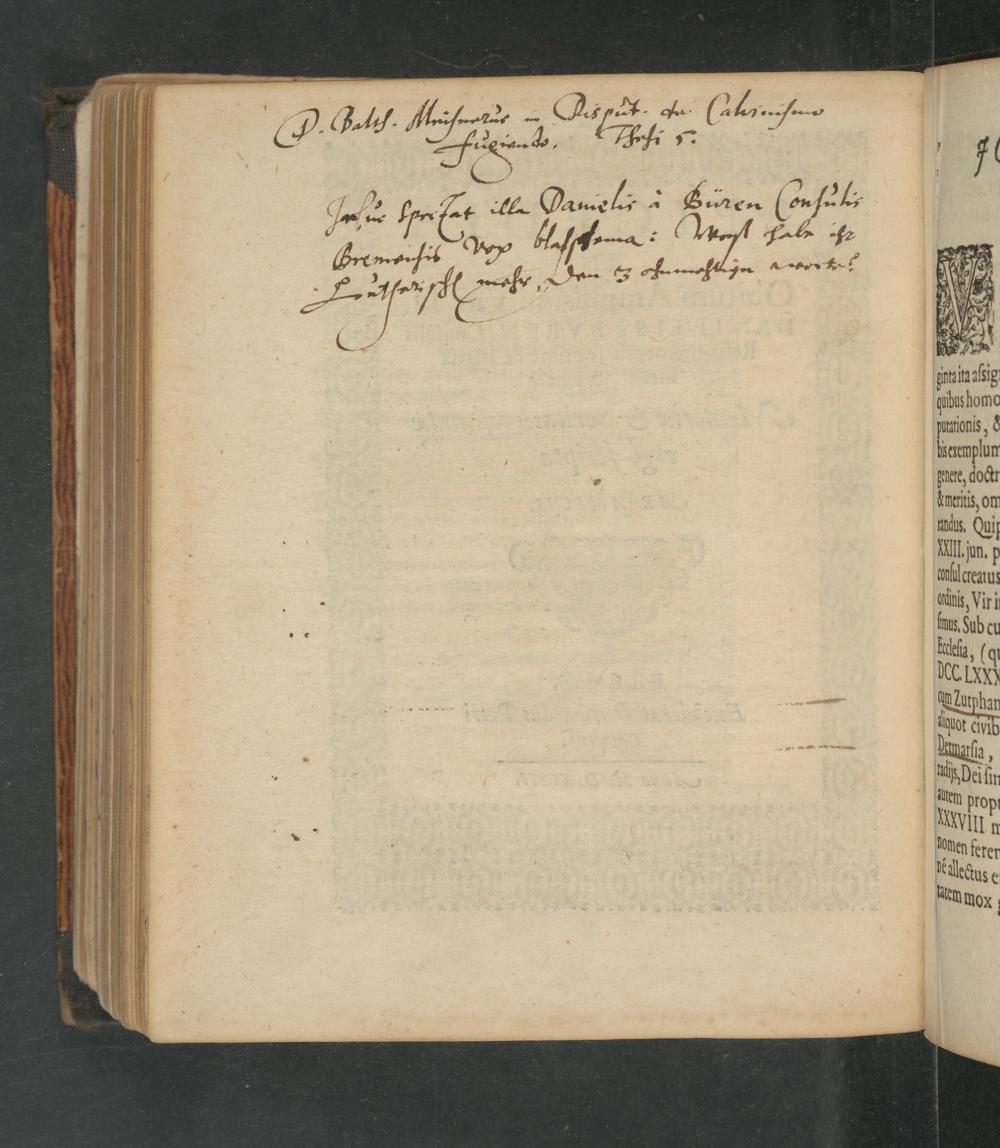 D. Balth. Meisnerus in Disput. de Calvinismo
fugiendo. Thesi 5.
Huc spectat illa Danielis à Büren Consulis
Bremensis vox blasphema: Was habt ihr
Lutherisch mehr, den 3 ohnmechtige worte?
ginta ita assig
quibus homo
putationis, &
bis exemplum
genere, doctr
& meritis, om
randus. Quip
XXIII. jun. p
consul creatus
ordinis, Vir i
simus. Sub cu
Ecclesia, (qu
DCC. LXXX
cum Zutphan
aliquot civib
Detmarsia,
radijs, Dei sin
autem propu
XXXVIII m
nomen feren
né allectus e
tatem mox g